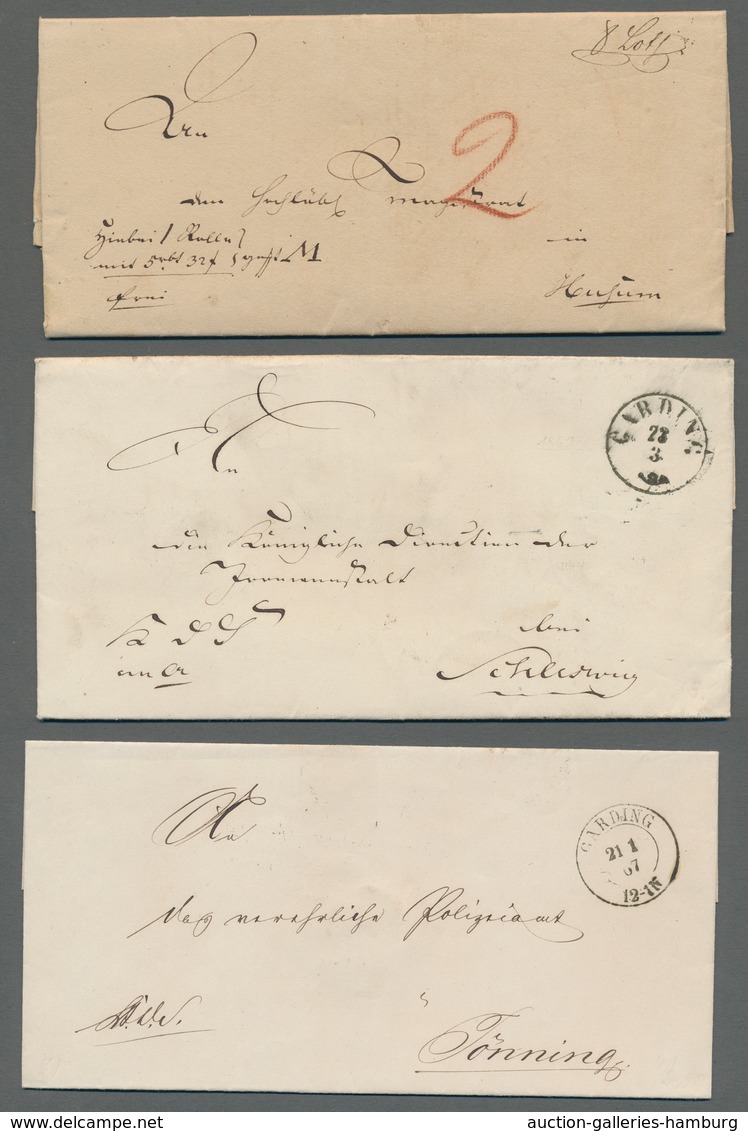 8 Loth
An
den Hochlöbl Magistrat
Hiebei 1 Rolle
in
mit 5 rbt 32 f M
frei
Husum
GARDING
23
3
An
die Königliche Direction der
Irrenanstalt
K D S
bei
Schleswig
GARDING
21 1
67
12-1N
An
das verehrliche Polizeiamt
K.d.S.
Tönning
auction-galleries-hamburg